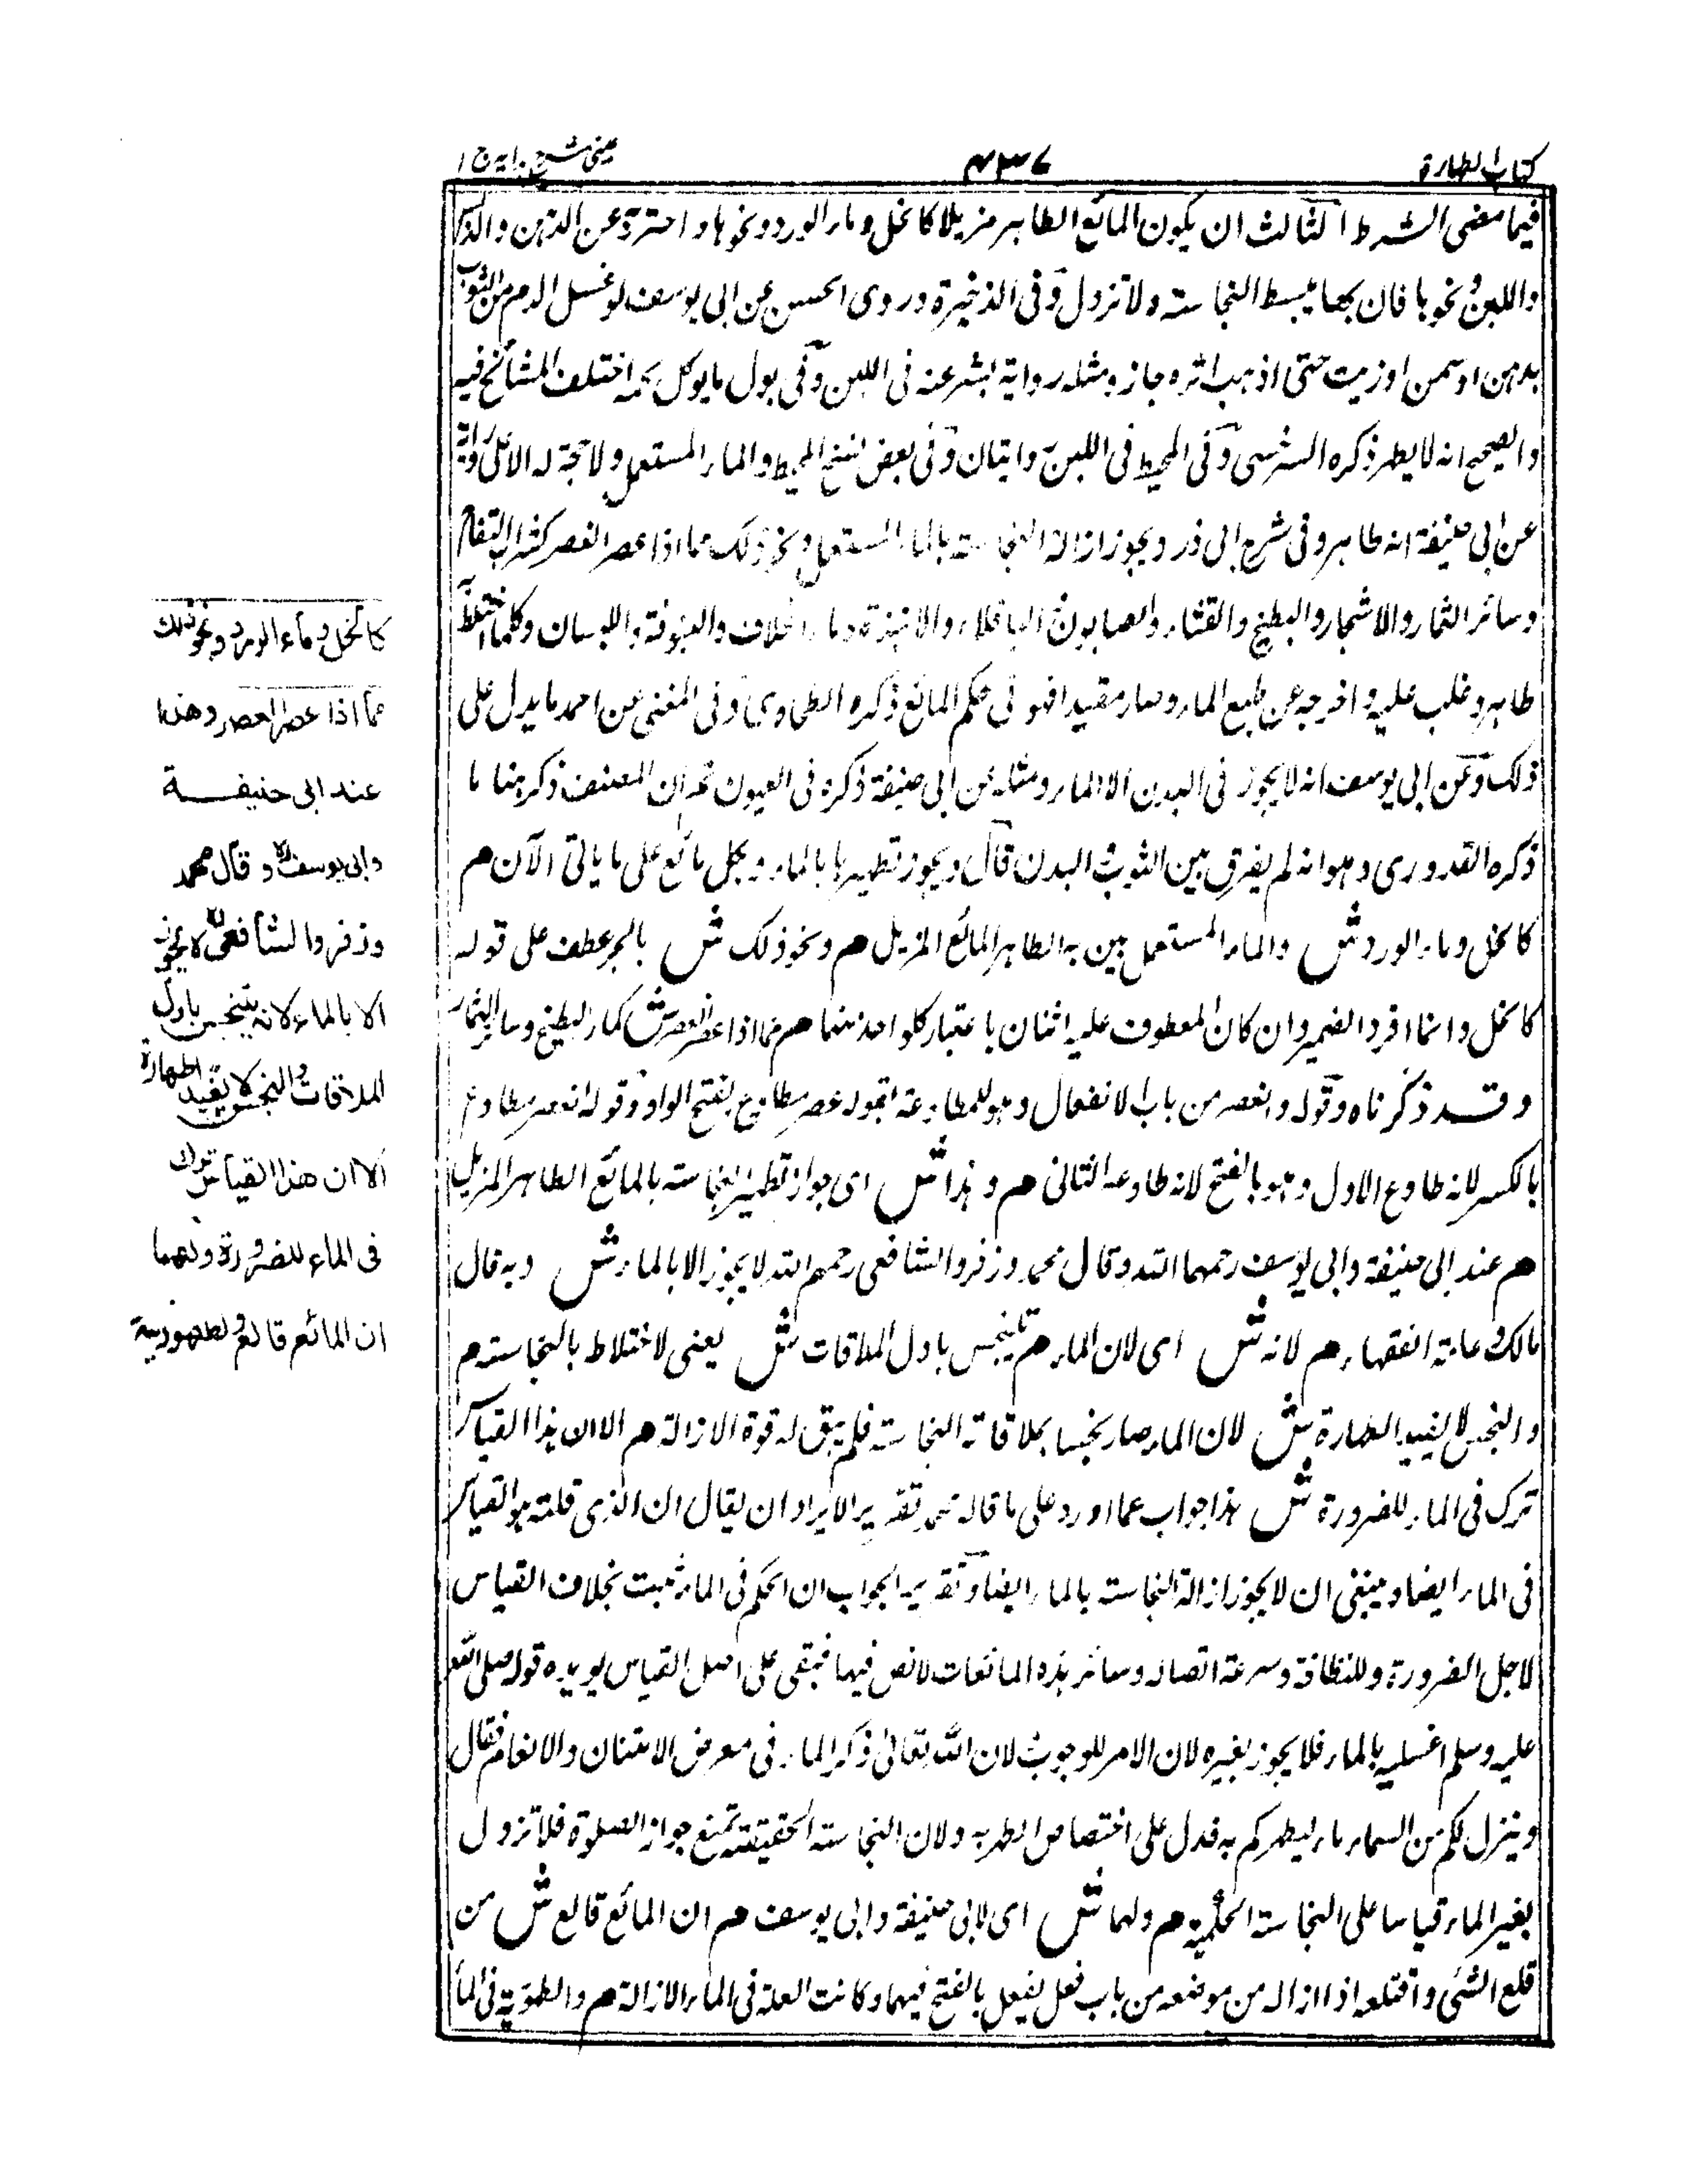 كتاب الطهارة
٤٣٧
عينى شرح هدايه ج ١
فيما مضى الشرط الثالث ان يكون المائع الطاهر مزيلا كالخل وماء الورد ونحوها واحترز عن الدهن والدبس
واللبن ونحوها فان بها يبسط النجاسة ولا تزول وفى الذخيرة وروى الحسن عن ابى يوسف لو غسل الدم من الثوب
بدهن او سمن او زيت حتى اذهب اثره جاز ومثله رواية بشر عنه فى اللبن وفى بول ما يوكل لحمه اختلف المشائخ فيه
والصحيح انه لا يطهر ذكره السرخسى وفى المحيط فى اللبن روايتان وفى بعض نسخ المحيط والماء المستعمل ولا حجة له الا على رواية
عن ابى حنيفة انه طاهر وفى شرح ابى ذر ويجوز ازالة النجاسة بالماء المستعمل ونحو ذلك مما اذا عصر انعصر كشراب التفاح
وسائر الثمار والاشجار والبطيخ والقثاء والصابون والباقلاء والانبذة وماء الخلاف واللبوسان وكلما اختلط به
طاهر وغلب عليه واخرجه عن طبع الماء وصار مقيدا فهو فى حكم المائع ذكره الطحاوى وفى المغنى عن احمد ما يدل على
ذلك وعن ابى يوسف انه لا يجوز فى البدن الا الماء ومثله عن ابى حنيفة ذكره فى العيون ثم ان المصنف ذكر هنا ما
ذكره القدورى وهو انه لم يفرق بين الثوب والبدن قال ويجوز تطهيرها بالماء وبكل مائع على ما ياتى الآن م
كالخل وماء الورد ش والماء المستعمل بين به الطاهر المائع المزيل م ونحو ذلك ش بالجر عطف على قوله
كالخل وانما افرد الضمير وان كان المعطوف عليه اثنان باعتبار كلواحد منهما م مما اذا عصر انعصر ش كماء البطيخ وسائر الثمار
وقد ذكرناه وقوله وانعصر من باب الانفعال وهو للمطاوعة فقوله عصر مطاوع بفتح الواو وقوله انعصر مطاوع
بالكسر لانه طاوع الاول وهو بالفتح لانه طاوعه الثانى م وهذا ش اى جواز تطهير النجاسة بالمائع الطاهر المزيل
م عند ابى حنيفة وابى يوسف رحمهما الله وقال محمد وزفر والشافعى رحمهم الله لا يجوز الا بالماء ش وبه قال
مالك وعامة الفقهاء م لانه ش اى لان الماء م يتنجس باول الملاقات ش يعنى لاختلاط بالنجاسة م
والنجس لا يفيد الطهارة ش لان الماء صار نجسا بملاقاته النجاسة فلم يبق له قوة الازالة م الا ان هذا القياس
ترك فى الماء للضرورة ش هذا جواب عما اورد على ما قاله محمد تقرير الايراد ان يقال ان الذى قلته هو القياس
فى الماء ايضا وينبغى ان لا يجوز ازالة النجاسة بالماء ايضا وتقرير الجواب ان الحكم فى الماء ثبت بخلاف القياس
لاجل الضرورة وللنظافة وسرعة اتصاله وسائر هذه المائعات لا نص فيها فبقى على اصل القياس يويده قوله صلى الله
عليه وسلم اغسليه بالماء فلا يجوز بغيره لان الامر للوجوب لان الله تعالى ذكر الماء فى معرض الامتنان والانعام فقال
وينزل لكم من السماء ماء ليطهركم به فدل على اختصاص الطهر به ولان النجاسة الحقيقة تمنع جواز الصلوة فلا تزول
بغير الماء قياسا على النجاسة الحكمية م ولهما ش اى لابى حنيفة وابى يوسف م ان المائع قالع ش من
قلع الشئ واقتلعه اذا ازاله من موضعه من باب فعل يفعل بالفتح فيهما وكانت العلة فى الماء الازالة م والطهورية فى الماء
كالخل وماء الورد ونحو ذلك
مما اذا عصر انعصر وهذا
عند ابى حنيفة
وابى يوسف رح وقال محمد
وزفر والشافعى رح لا يجوز
الا بالماء لانه يتنجس باول
الملاقات والنجس لا يفيد الطهارة
الا ان هذا القياس ترك
فى الماء للضرورة ولهما
ان المائع قالع والطهورية